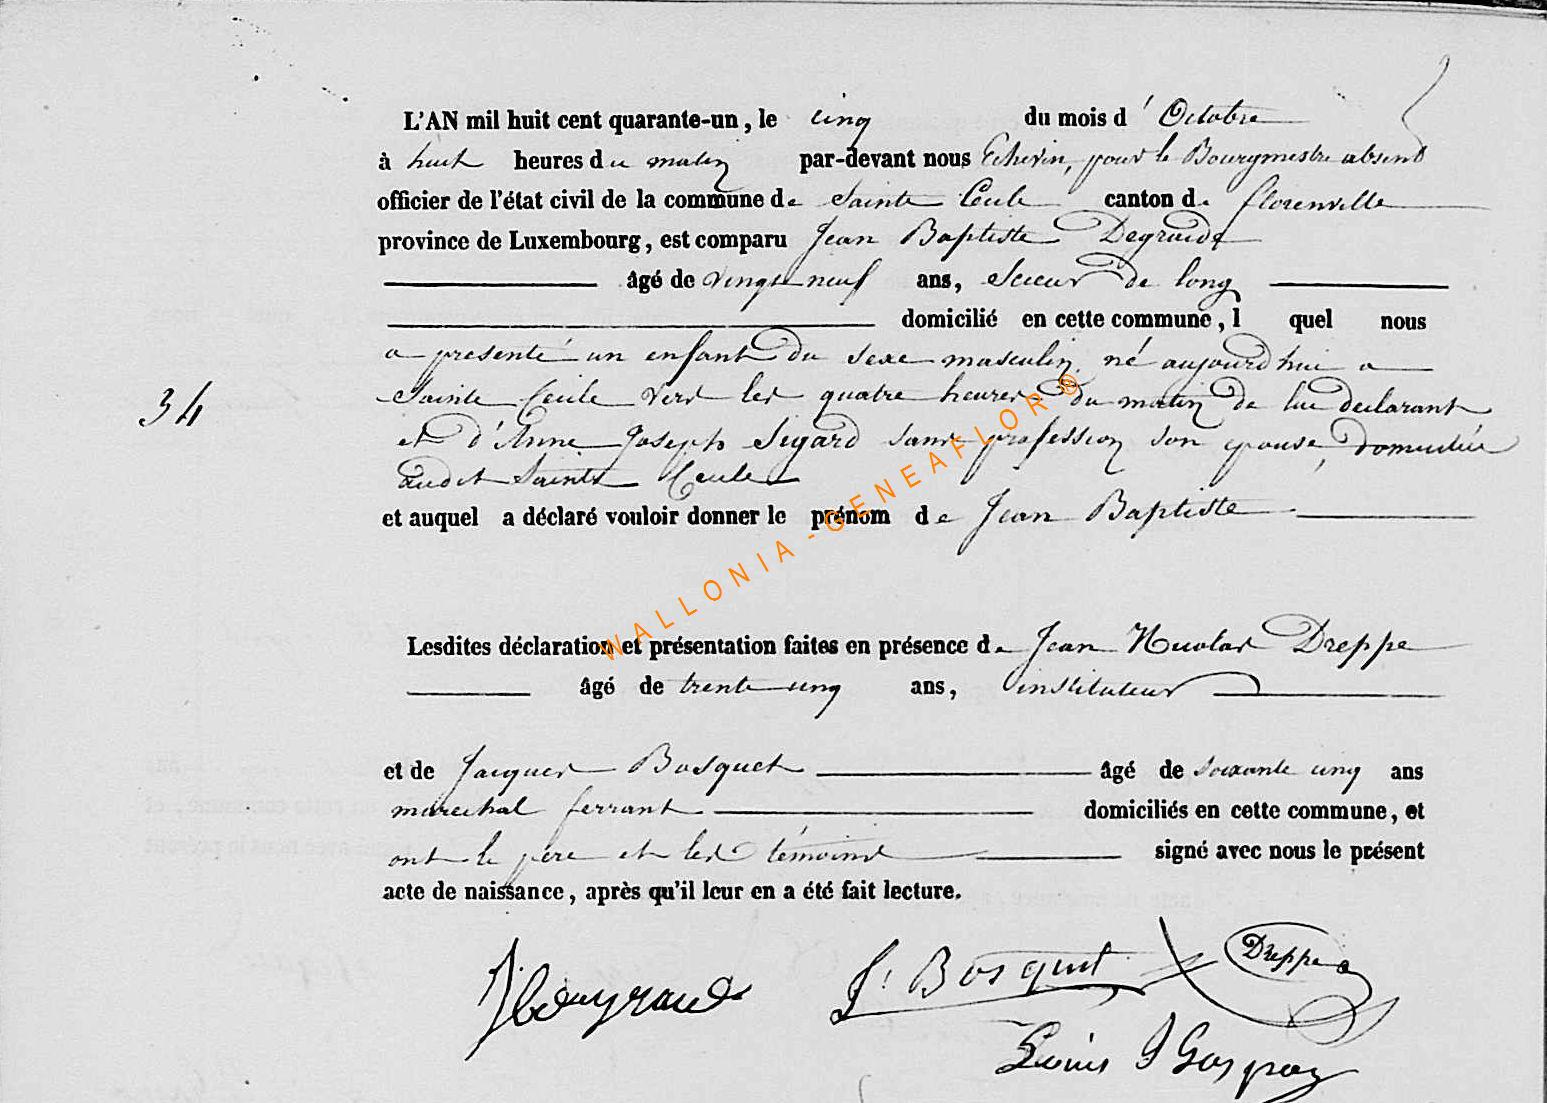 L'AN mil huit cent quarante-un, le cinq du mois d'Octobre
à huit heures du matin par-devant nous Echevin, pour le Bourgmestre absent
officier de l'état civil de la commune de Sainte Cecile canton de florenville
province de Luxembourg, est comparu Jean Baptiste Degraide
âgé de vingt neuf ans, Scieur de long
domicilié en cette commune, l quel nous
a presenté un enfant du sexe masculin, né aujourd'hui a
Sainte Cecile vers les quatre heures du matin de lui declarant
34
et d'Anne Joseph Sigard sans profession son epouse, domiciliée
audit Sainte Cecile
et auquel a déclaré vouloir donner le prénom de Jean Baptiste
WALLONIA - GENEAFLOR®
Lesdites déclaration et présentation faites en présence de Jean Nicolas Dreppe
âgé de trente cinq ans, instituteur
et de Jacques Bosquet âgé de soixante cinq ans
marechal ferrant domiciliés en cette commune, et
ont le père et les témoins signé avec nous le présent
acte de naissance, après qu'il leur en a été fait lecture.
J. Bosquet Dreppe
Louis J Gospoz